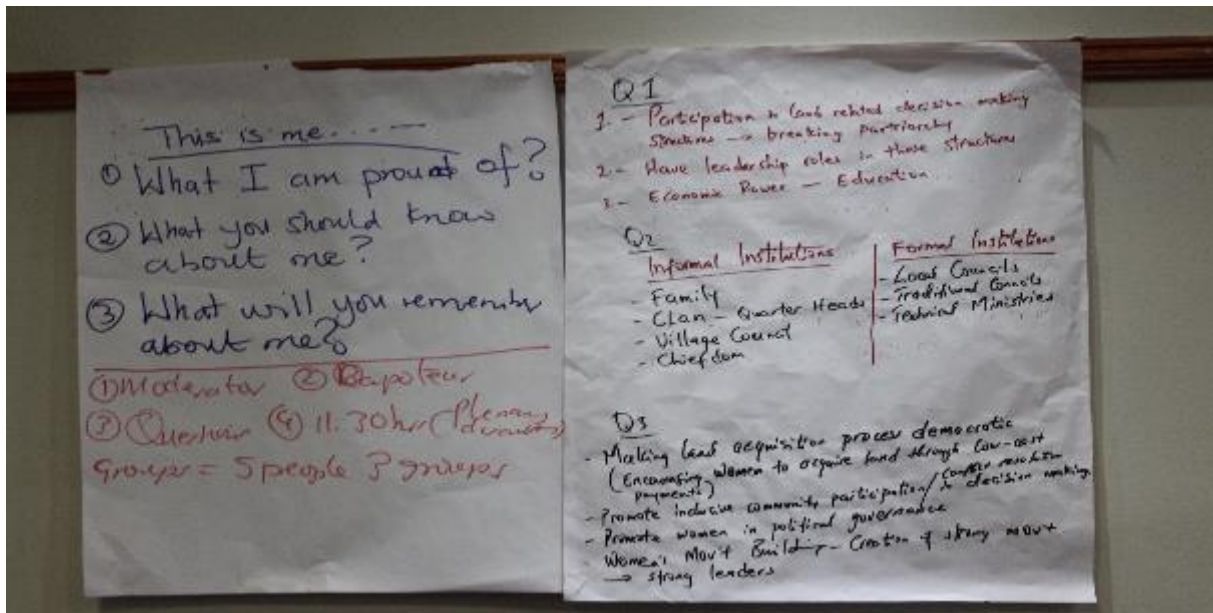 This is me.....
① What I am proud of?
② What you should know
about me?
③ What will you remember
about me?
① Moderator ② Rapoteur
③ Question ④ 11.30hr (Plenary
Groups = 5 people 3 groups
Q1
1. - Participation in land related decision making
structures → breaking partriarchy
2. - Have leadership roles in those structures
3. - Economic Power - Education
Q2
Informal Institutions
- Family
- Clan - Quarter Heads
- Village Council
- Chiefdom
Formal Institutions
- Local Councils
- Traditional Councils
- Technical Ministries
Q3
- Making land acquisition process democratic
(Encouraging women to acquire land through low-cost
payments)
- Promote inclusive community participation/conflict resolution
& decision making
- Promote women in political governance
Women's Mov't Building - Creation of strong mov't
→ strong leaders